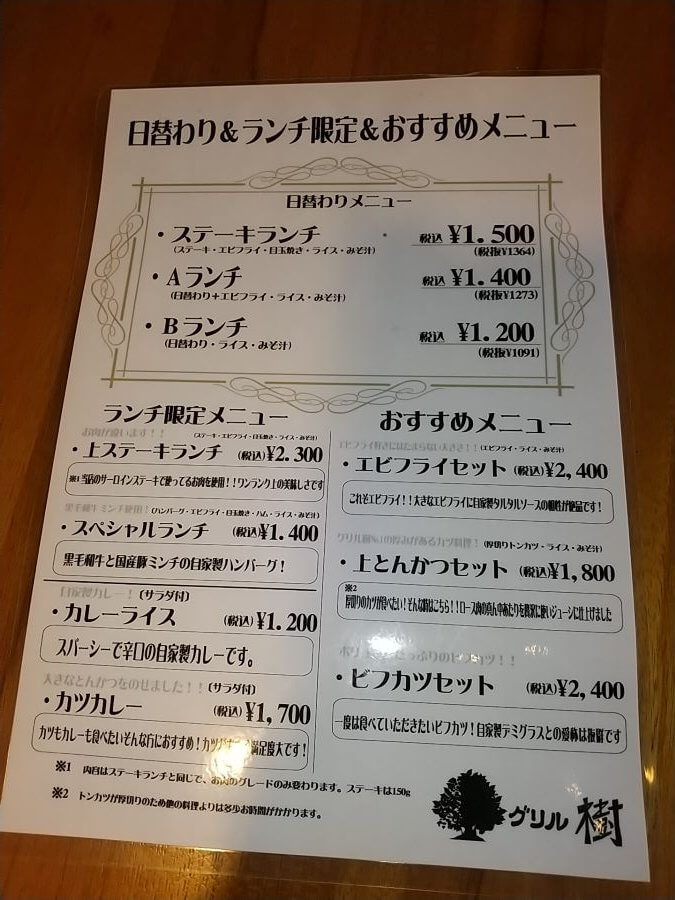 日替わり&ランチ限定&おすすめメニュー
日替わりメニュー
・ステーキランチ 税込 ¥1.500
(ステーキ・エビフライ・目玉焼き・ライス・みそ汁) (税抜¥1364)
・Aランチ 税込 ¥1.400
(日替わり+エビフライ・ライス・みそ汁) (税抜¥1273)
・Bランチ 税込 ¥1.200
(日替わり・ライス・みそ汁) (税抜¥1091)
ランチ限定メニュー
お肉が違います!! (ステーキ・エビフライ・目玉焼き・ライス・みそ汁)
・上ステーキランチ (税込)¥2.300
※1 当店のサーロインステーキで使ってるお肉を使用!!ワンランク上の美味しさです
黒毛和牛ミンチ使用!(ハンバーグ・エビフライ・目玉焼き・ハム・ライス・みそ汁)
・スペシャルランチ (税込)¥1.400
黒毛和牛と国産豚ミンチの自家製ハンバーグ!
自家製カレー!(サラダ付)
・カレーライス (税込)¥1.200
スパーシーで辛口の自家製カレーです。
大きなとんかつをのせました!!(サラダ付)
・カツカレー (税込)¥1,700
カツもカレーも食べたいそんな方におすすめ!カツ 満足度大です!
おすすめメニュー
エビフライ好きにはたまらない大きさ!!(エビフライ・ライス・みそ汁)
・エビフライセット (税込)¥2,400
これぞエビフライ!!大きなエビフライに自家製タルタルソースの相性が絶品です!
グリル樹№1の厚みがあるカツ料理!(厚切りトンカツ・ライス・みそ汁)
・上とんかつセット (税込)¥1,800
※2
厚切りのカツが食べたい!そんな時はこちら!!ロース肉の真ん中あたりを贅沢に使いジューシに仕上げました
っぷりのビフカツ!!
・ビフカツセット (税込)¥2,400
一度は食べていただきたいビフカツ!自家製デミグラスとの愛称は抜群です
※1 内容はステーキランチと同じで、お肉のグレードのみ変わります。ステーキは150g
※2 トンカツが厚切りのため他の料理よりは多少お時間がかかります。
グリル 樹